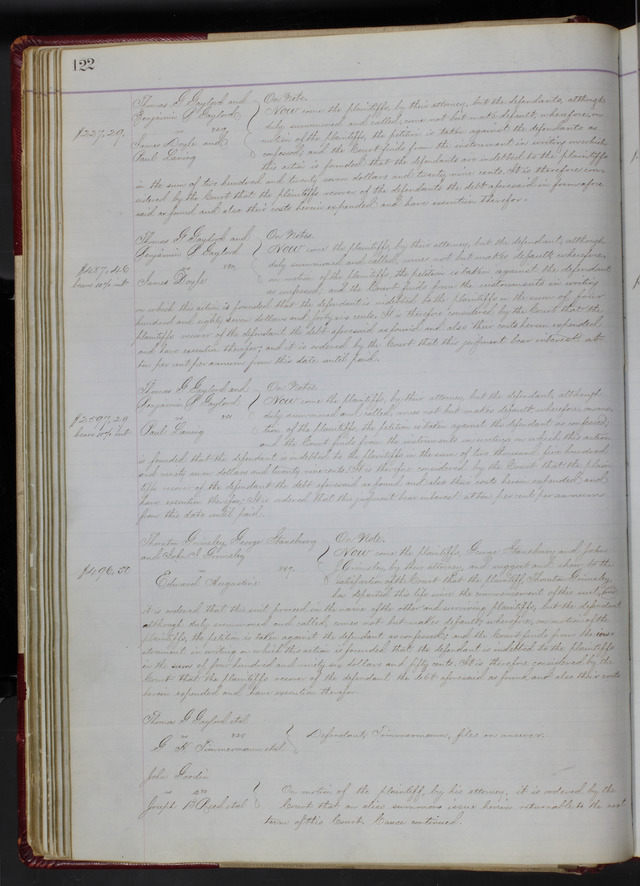 122
Thomas G Gaylord and
Benjamin P Gaylord
vs
James Doyle and
Paul Laning
$227,29,
On Note.
Now come the plaintiffs, by their attorney, but the defendants, although
duly summoned and called, come not but make default, wherefore, on
motion of the plaintiffs, the petition is taken against the defendants as
confessed, and the Court finds from the instrument in writing on which
this action is founded, that the defendants are indebted to the plaintiffs
in the sum of two hundred and twenty seven dollars and twenty nine cents. It is therefore con
sidered by the Court that the plaintiffs recover of the defendants the debt aforesaid in form afore
said as found and also their costs herein expended and have execution therefor.
Thomas G Gaylord and
Benjamin P Gaylord
vs
James Doyle
$487,46
bears 10% int
On Notes.
Now come the plaintiffs, by their attorney, but the defendant, although
duly summoned and called, comes not but makes default, wherefore,
on motion of the plaintiffs the petition is taken against the defendant
as confessed, and the Court finds from the instruments in writing
on which this action is founded, that the defendant is indebted to the plaintiffs in the sum of four
hundred and eighty seven dollars and forty six cents. It is therefore considered by the Court that the
plaintiffs recover of the defendant the debt aforesaid as found and also their costs herein expended
and have execution therefor, and it is ordered by the Court that this judgment bear interest at
ten per cent per annum from this date until paid.
Thomas G Gaylord and
Benjamin P Gaylord
vs
Paul Laning
bears 10% int
On Notes.
Now come the plaintiffs, by their attorney, but the defendant, although
duly summoned and called, comes not but makes default wherefore, on mo
tion of the plaintiffs, the petition is taken against the defendant as confessed,
and the Court finds from the instruments in writing on which this action
is founded, that the defendant is indebted to the plaintiffs in the sum of two thousand, five hundred
and ninety seven dollars and twenty nine cents. It is therefore considered by the Court that the plain
tiffs recover of the defendant the debt aforesaid as found and also their costs herein expended and
have execution therefor; It is ordered that this judgment bear interest at ten per cent per annum
from this date until paid.
Thornton Grimsley, George Stansberry
and John I Grimsley
vs
Edward Augustine
$496,50
On Note.
Now come the plaintiffs, George Stansberry and John
Grimsley, by their attorney and suggest and show to the
satisfaction of the Court that the plaintiff Thornton Grimsley,
has departed this life since the commencement of this suit, and
it is ordered that this suit proceed in the name of the other and surviving plaintiffs, but the defendant
although duly summoned and called, comes not but makes default, wherefore, on motion of the
plaintiffs, the petition is taken against the defendant as confessed, and the Court finds from the ins
trument in writing on which this action is founded that the defendant is indebted to the plaintiffs
in the sum of four hundred and ninety six dollars and fifty cents. It is therefore considered by the
Court that the plaintiffs recover of the defendant the debt aforesaid as found and also their costs
herein expended and have execution therefor
Thomas G Gaylord et al
vs
G H Timmermann et al
Defendant, Timmermann, files an answer.
John Goodin
vs
Joseph B et al
On motion of the plaintiff, by his attorney, it is ordered by the
Court that an alias summons issue herein returnable to the next
term of this Court. Cause continued.